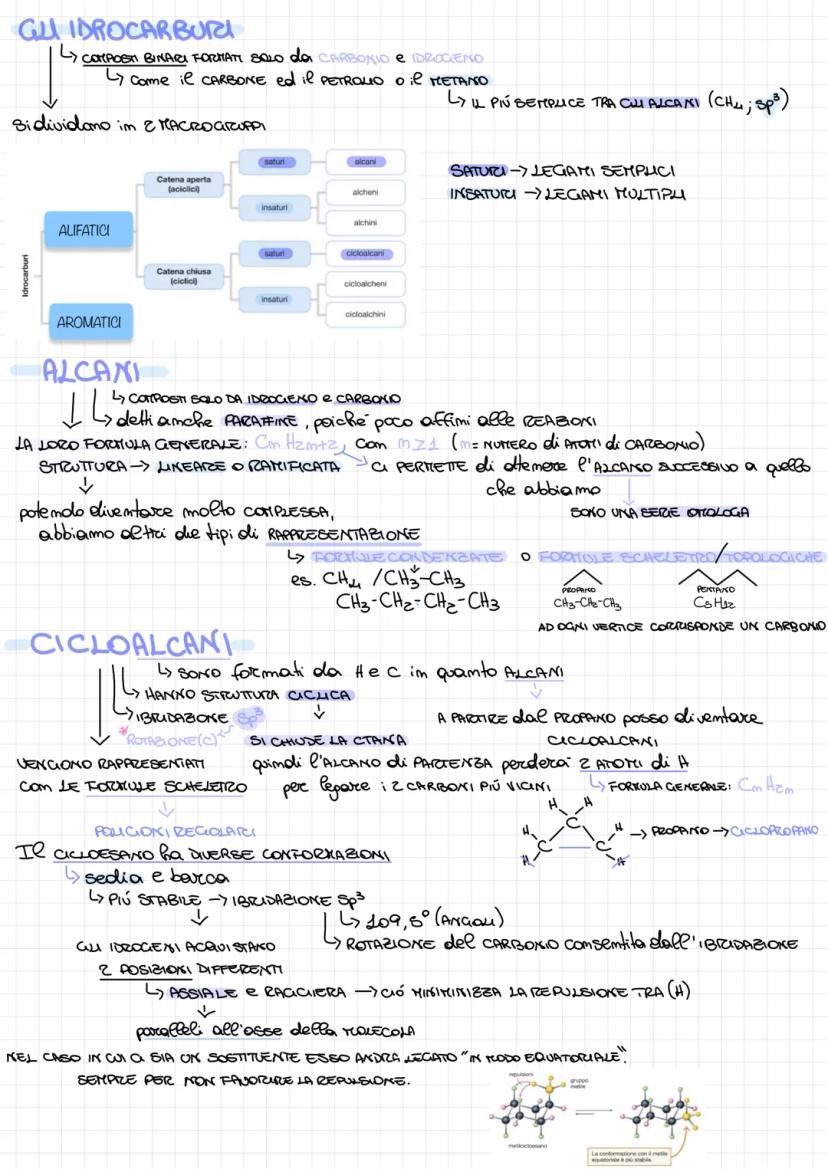 GLI IDROCARBURI
↳ COMPOSTI BINARI FORMATI SOLO da CARBONIO e IDROGENO
↳ Come il CARBONE ed il PETROLIO o il METANO
↳ IL PIÚ SEMPLICE TRA GLI ALCANI (CH4; sp³)
Si dividono in 2 MACROGRUPPI
SATURI → LEGAMI SEMPLICI
INSATURI → LEGAMI MULTIPLI
Idrocarburi
ALIFATICI
AROMATICI
Catena aperta
(aciclici)
Catena chiusa
(ciclici)
saturi
insaturi
saturi
insaturi
alcani
alcheni
alchini
cicloalcani
cicloalcheni
cicloalchini
ALCANI
↳ COMPOSTI SOLO DA IDROGENO e CARBONIO
↳ detti anche PARAFFINE, poiché poco affini alle REAZIONI
LA LORO FORMULA GENERALE: CnH2n+2, con n≥1 (n= NUMERO di ATOMI di CARBONIO)
STRUTTURA → LINEARE O RAMIFICATA
CI PERMETTE di ottenere l'ALCANO SUCCESSIVO a quello
che abbiamo
SONO UNA SERIE OMOLOGA
potendo diventare molto COMPLESSA,
abbiamo altri due tipi di RAPPRESENTAZIONE
↳ FORMULE CONDENZATE O FORMULE SCHELETRO/TOPOLOGICHE
es. CH4 / CH3-CH3
CH3-CH2-CH2-CH3
PROPANO
CH3-CH2-CH3
PENTANO
C5H12
AD OGNI VERTICE CORRISPONDE UN CARBONIO
CICLOALCANI
↳ SONO formati da H e C in quanto ALCANI
↳ HANNO STRUTTURA CICLICA
↳ IBRIDAZIONE Sp³
*ROTAZIONE(C)
SI CHIUDE LA CTANA
A PARTIRE dal PROPANO posso diventare
CICLOALCANI
VENGONO RAPPRESENTATI
con LE FORMULE SCHELETRO
POLIGONI REGOLARI
quindi l'ALCANO di PARTENZA perderá 2 ATOMI di H
per legare i 2 CARBONI PIÚ VICINI
↳ FORMULA GENERALE: CnH2n
H H
C
H C C H
H H
→ PROPANO → CICLOPROPANO
Il CICLOESANO ha DIVERSE CONFORMAZIONI
↳ sedia e barca
↳ PIÚ STABILE → IBRIDAZIONE Sp³
↳ 109,5° (ANGOLI)
↳ ROTAZIONE del CARBONIO consentita dall'IBRIDAZIONE
GLI IDROGENI ACQUISTANO
2 POSIZIONI DIFFERENTI
↳ ASSIALE e RAGGIERA → CIÓ MINIMINIZZA LA REPULSIONE TRA (H)
paralleli all'asse della MOLECOLA
NEL CASO IN CUI CI SIA UN SOSTITUENTE ESSO ANDRÁ LEGATO "IN MODO EQUATORIALE".
SEMPRE PER NON FAVORIRE LA REPULSIONE.
repulsioni
gruppo
metile
metilcicloesano
La conformazione con il metile
equatoriale è più stabile.